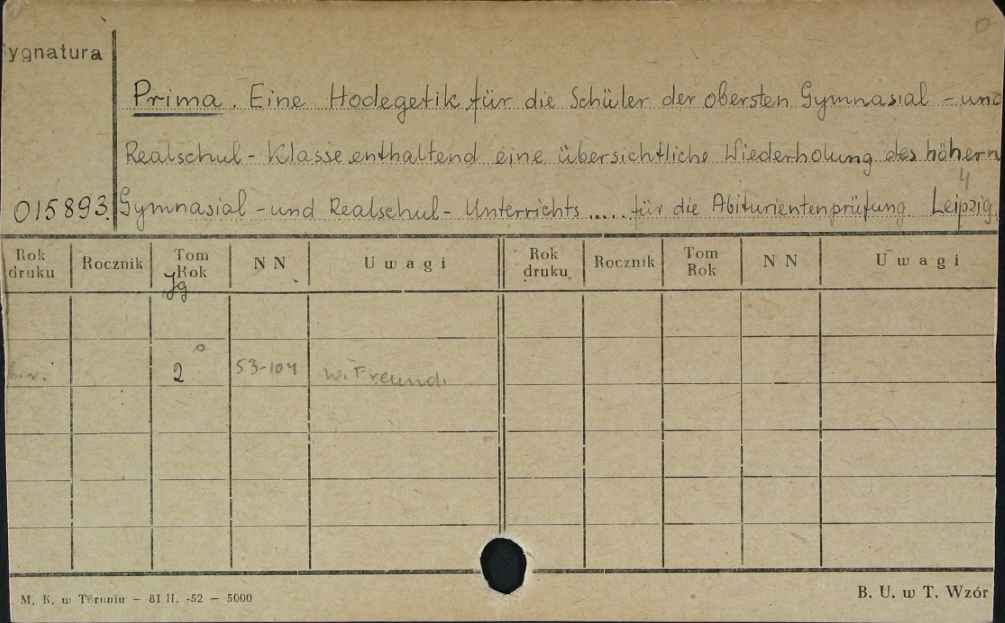 ygnatura
Prima. Eine Hodegetik für die Schüler der obersten Gymnasial - und
Realschul - Klasse enthaltend eine übersichtliche Wiederholung des höhern
4
015893. Gymnasial - und Realschul - Unterrichts ..... für die Abiturientenprüfung. Leipzig.
Rok druku Rocznik Tom Rok N N Uwagi Rok druku Rocznik Tom Rok N N Uwagi
Jg
2° 53-104 W. Freund.
M. K. w Toruniu — 81 II. -52 — 5000
B. U. w T. Wzór